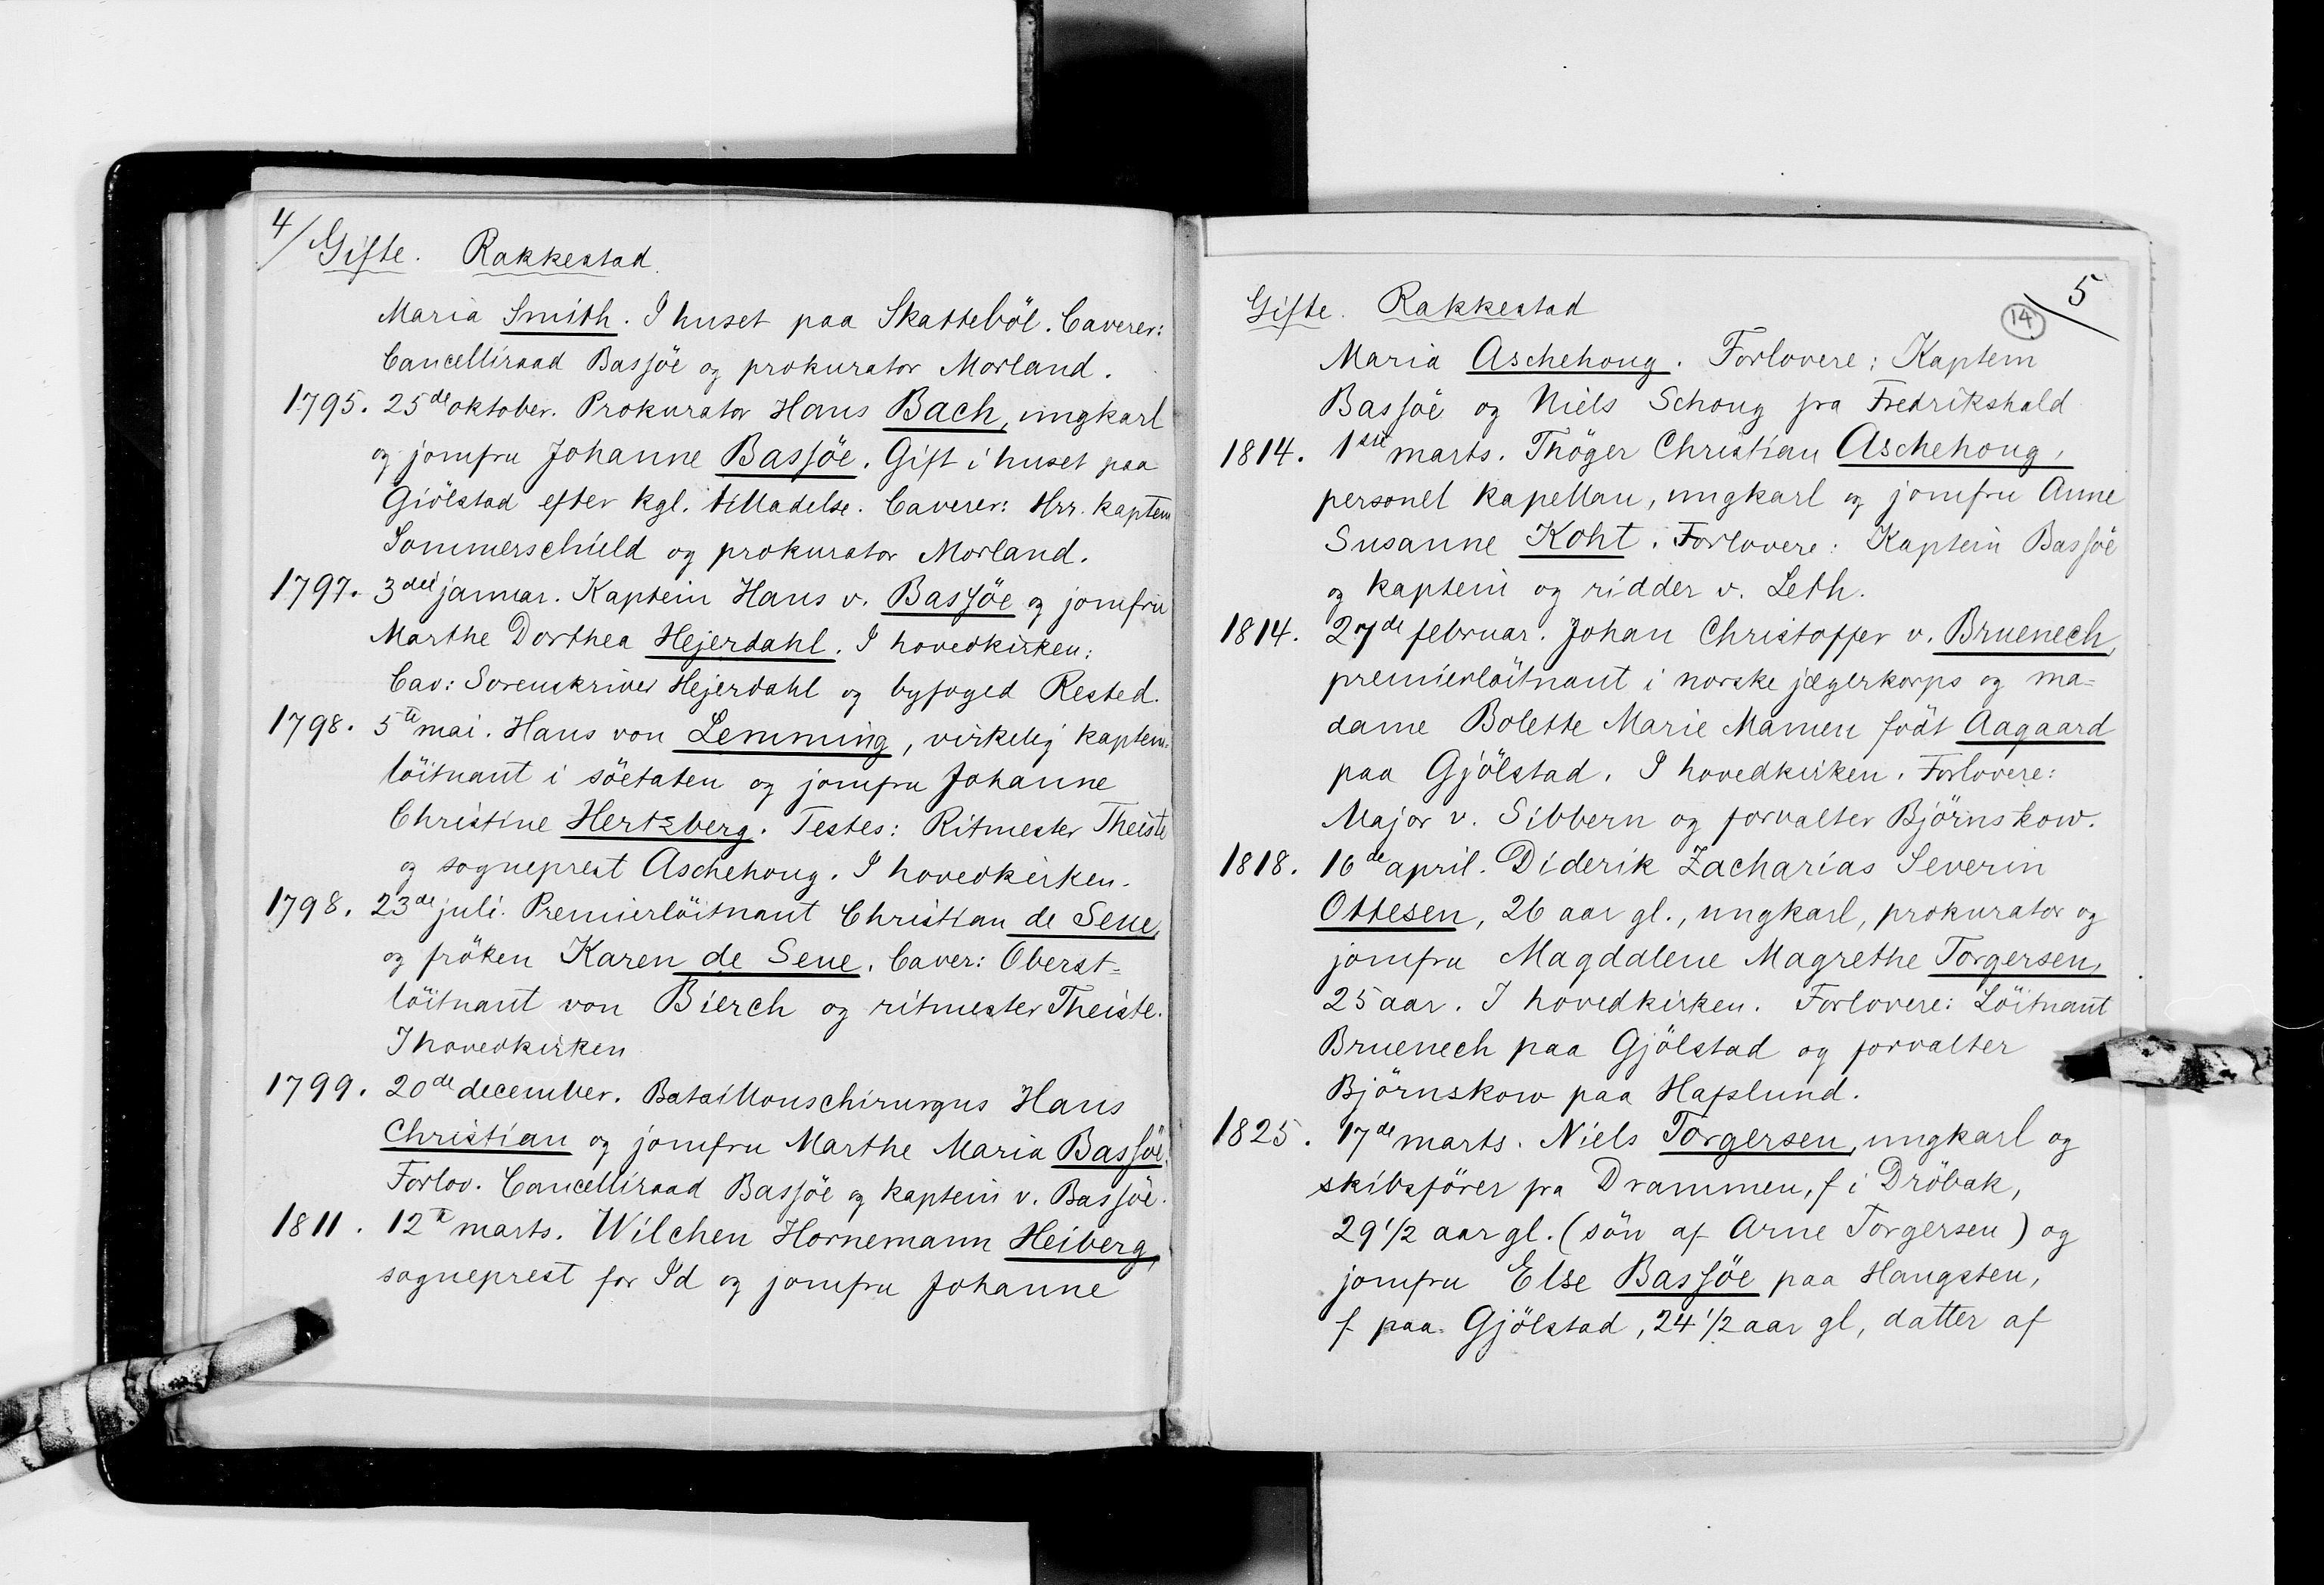 4/
Gifte. Rakkestad.
Maria Smith. I huset paa Skatteböl. Caverer:
Cancelliraad Bassöe og prokurator Morland.
1795. 25de oktober. Prokurator Hans Bach, ungkarl
og jomfru Johanne Bassöe. Gift i huset paa
Giölstad efter kgl. tilladelse. Caverer: Hrr. kaptein
Sommerschield og prokurator Morland.
1797. 3die januar. Kaptein Hans v. Bassöe og jomfru
Marthe Dorthea Hejerdahl. I hovedkirken:
Cav: Sorenskriver Hejerdahl og byfoged Rested.
1798. 5te mai. Hans von Lemming, virkelig kaptein-
löitnant i söetaten og jomfru Johanne
Christine Hertzberg. Testes: Ritmester Theiste
og sogneprest Aschehoug. I hovedkirken.
1798. 23de juli. Premierlöitnant Christian de Seue,
og fröken Karen de Seue. Caver: Oberst=
löitnant von Bierch og ritmester Theiste.
I hovedkirken
1799. 20de december. Bataillonschirurgus Hans
Christian og jomfru Marthe Maria Bassöe.
Forlov. Cancelliraad Bassöe og kaptein v. Bassöe.
1811. 12te marts. Wilchen Hornemann Heiberg,
sogneprest for Id og jomfru Johanne
5
14
Gifte. Rakkestad
Maria Aschehoug. Forlovere: Kaptein
Bassöe og Niels Schoug fra Fredrikshald
1814. 1ste marts. Thöger Christian Aschehoug,
personel kapellan, ungkarl og jomfru Anne
Susanne Koht. Forlovere: Kaptein Bassöe
og kaptein og ridder v. Leth.
1814. 27de februar. Johan Christoffer v. Bruenech,
premierlöitnant i norske jægerkorps og ma=
dame Bolette Marie Mamen födt Aagaard
paa Gjölstad. I hovedkirken. Forlovere:
Major v. Sibbern og forvalter Björnskow.
1818. 16de april. Diderik Zacharias Severin
Ottesen, 26 aar gl., ungkarl, prokurator og
jomfru Magdalene Magrethe Torgersen,
25 aar. I hovedkirken. Forlovere: Löitnant
Bruenech paa Gjölstad og forvalter
Björnskow paa Hafslund.
1825. 17de marts. Niels Torgersen, ungkarl og
skibsförer fra Drammen, f i Dröbak,
29 1/2 aar gl. (sön af Arne Torgersen) og
jomfru Else Bassöe paa Haugsten,
f paa Gjölstad, 24 1/2 aar gl, datter af